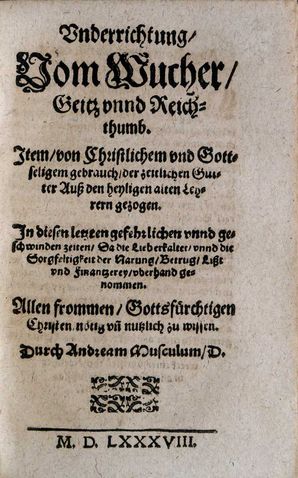 Vnderrichtung/
Vom Wucher/
Geitz vnnd Reich-
thumb.
Item/von Christlichem vnd Gott-
seligem gebrauch/der zeitlichen Gut-
ter Auß den heyligen alten Leh-
rern gezogen.
In diesen letzten gefehrlichen vnnd ge-
schwinden zeiten/Da die Lieb erkaltet/vnnd die
Sorgfeltigkeit der Narung/Betrug/List
vnd Finantzerey/vberhand ge-
nommen.
Allen frommen/Gottsfürchtigen
Christen nötig vñ nutzlich zu wissen.
Durch Andream Musculum/D.
M. D. LXXXVIII.